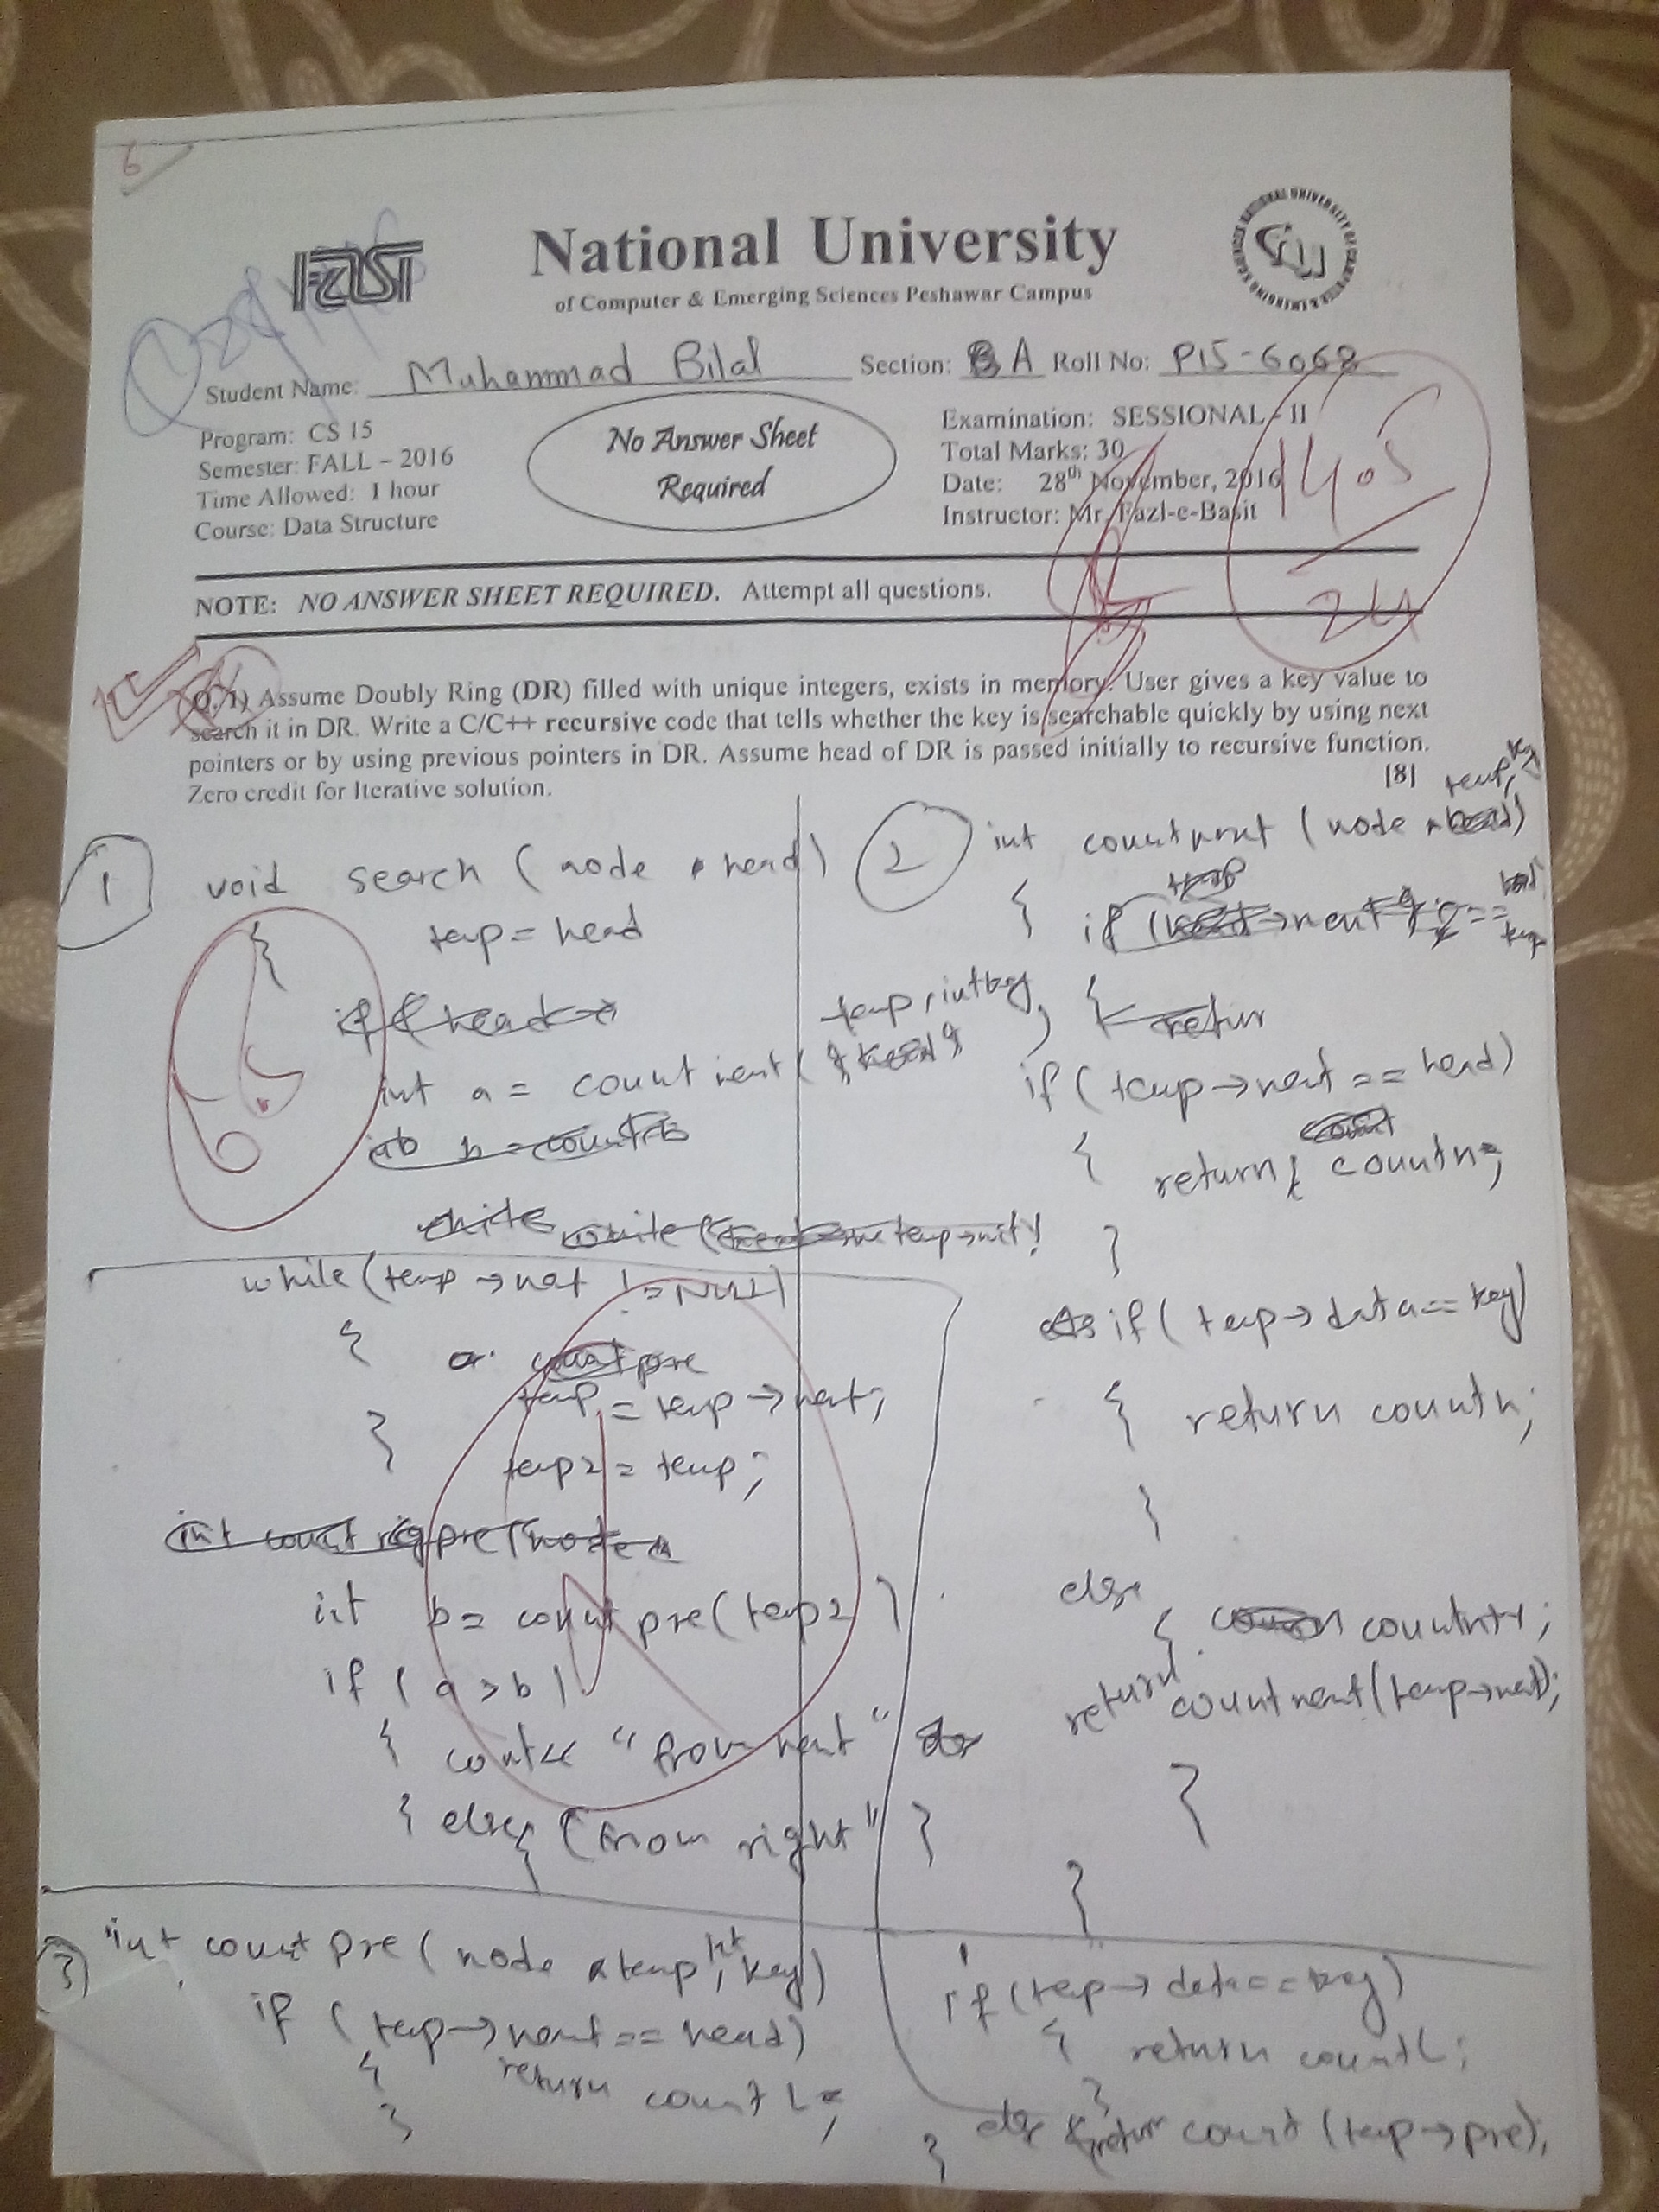 6
FAST
National University
of Computer & Emerging Sciences Peshawar Campus
Student Name: Muhammad Bilal Section: A Roll No: P15-6068
Program: CS 15
Semester: FALL – 2016
Time Allowed: 1 hour
Course: Data Structure
No Answer Sheet
Required
Examination: SESSIONAL - II
Total Marks: 30
Date: 28th November, 2016
Instructor: Mr. Fazl-e-Basit
14.5
24
NOTE: NO ANSWER SHEET REQUIRED. Attempt all questions.
Q. 1) Assume Doubly Ring (DR) filled with unique integers, exists in memory. User gives a key value to
search it in DR. Write a C/C++ recursive code that tells whether the key is searchable quickly by using next
pointers or by using previous pointers in DR. Assume head of DR is passed initially to recursive function.
Zero credit for Iterative solution.
[8]
1
void search (node *head)
{ temp = head
int a = count next (temp, int key)
while (temp → next != NULL)
{
temp = temp → next;
} temp2 = temp;
int b = count pre (temp2)
if (a > b)
{ cout << "from next"
} else { (from right" }
2
int countnext (node * temp, key)
{
if (temp → next == head)
{ return countn;
}
if (temp → data == key)
{ return countn;
}
else
{ countn++;
return countnext (temp → next);
}
}
3
int count pre (node * temp, int key)
if (temp → next == head)
{ return count L;
}
if (temp → data == key)
{ return countL;
}
else {return count (temp → pre);
}